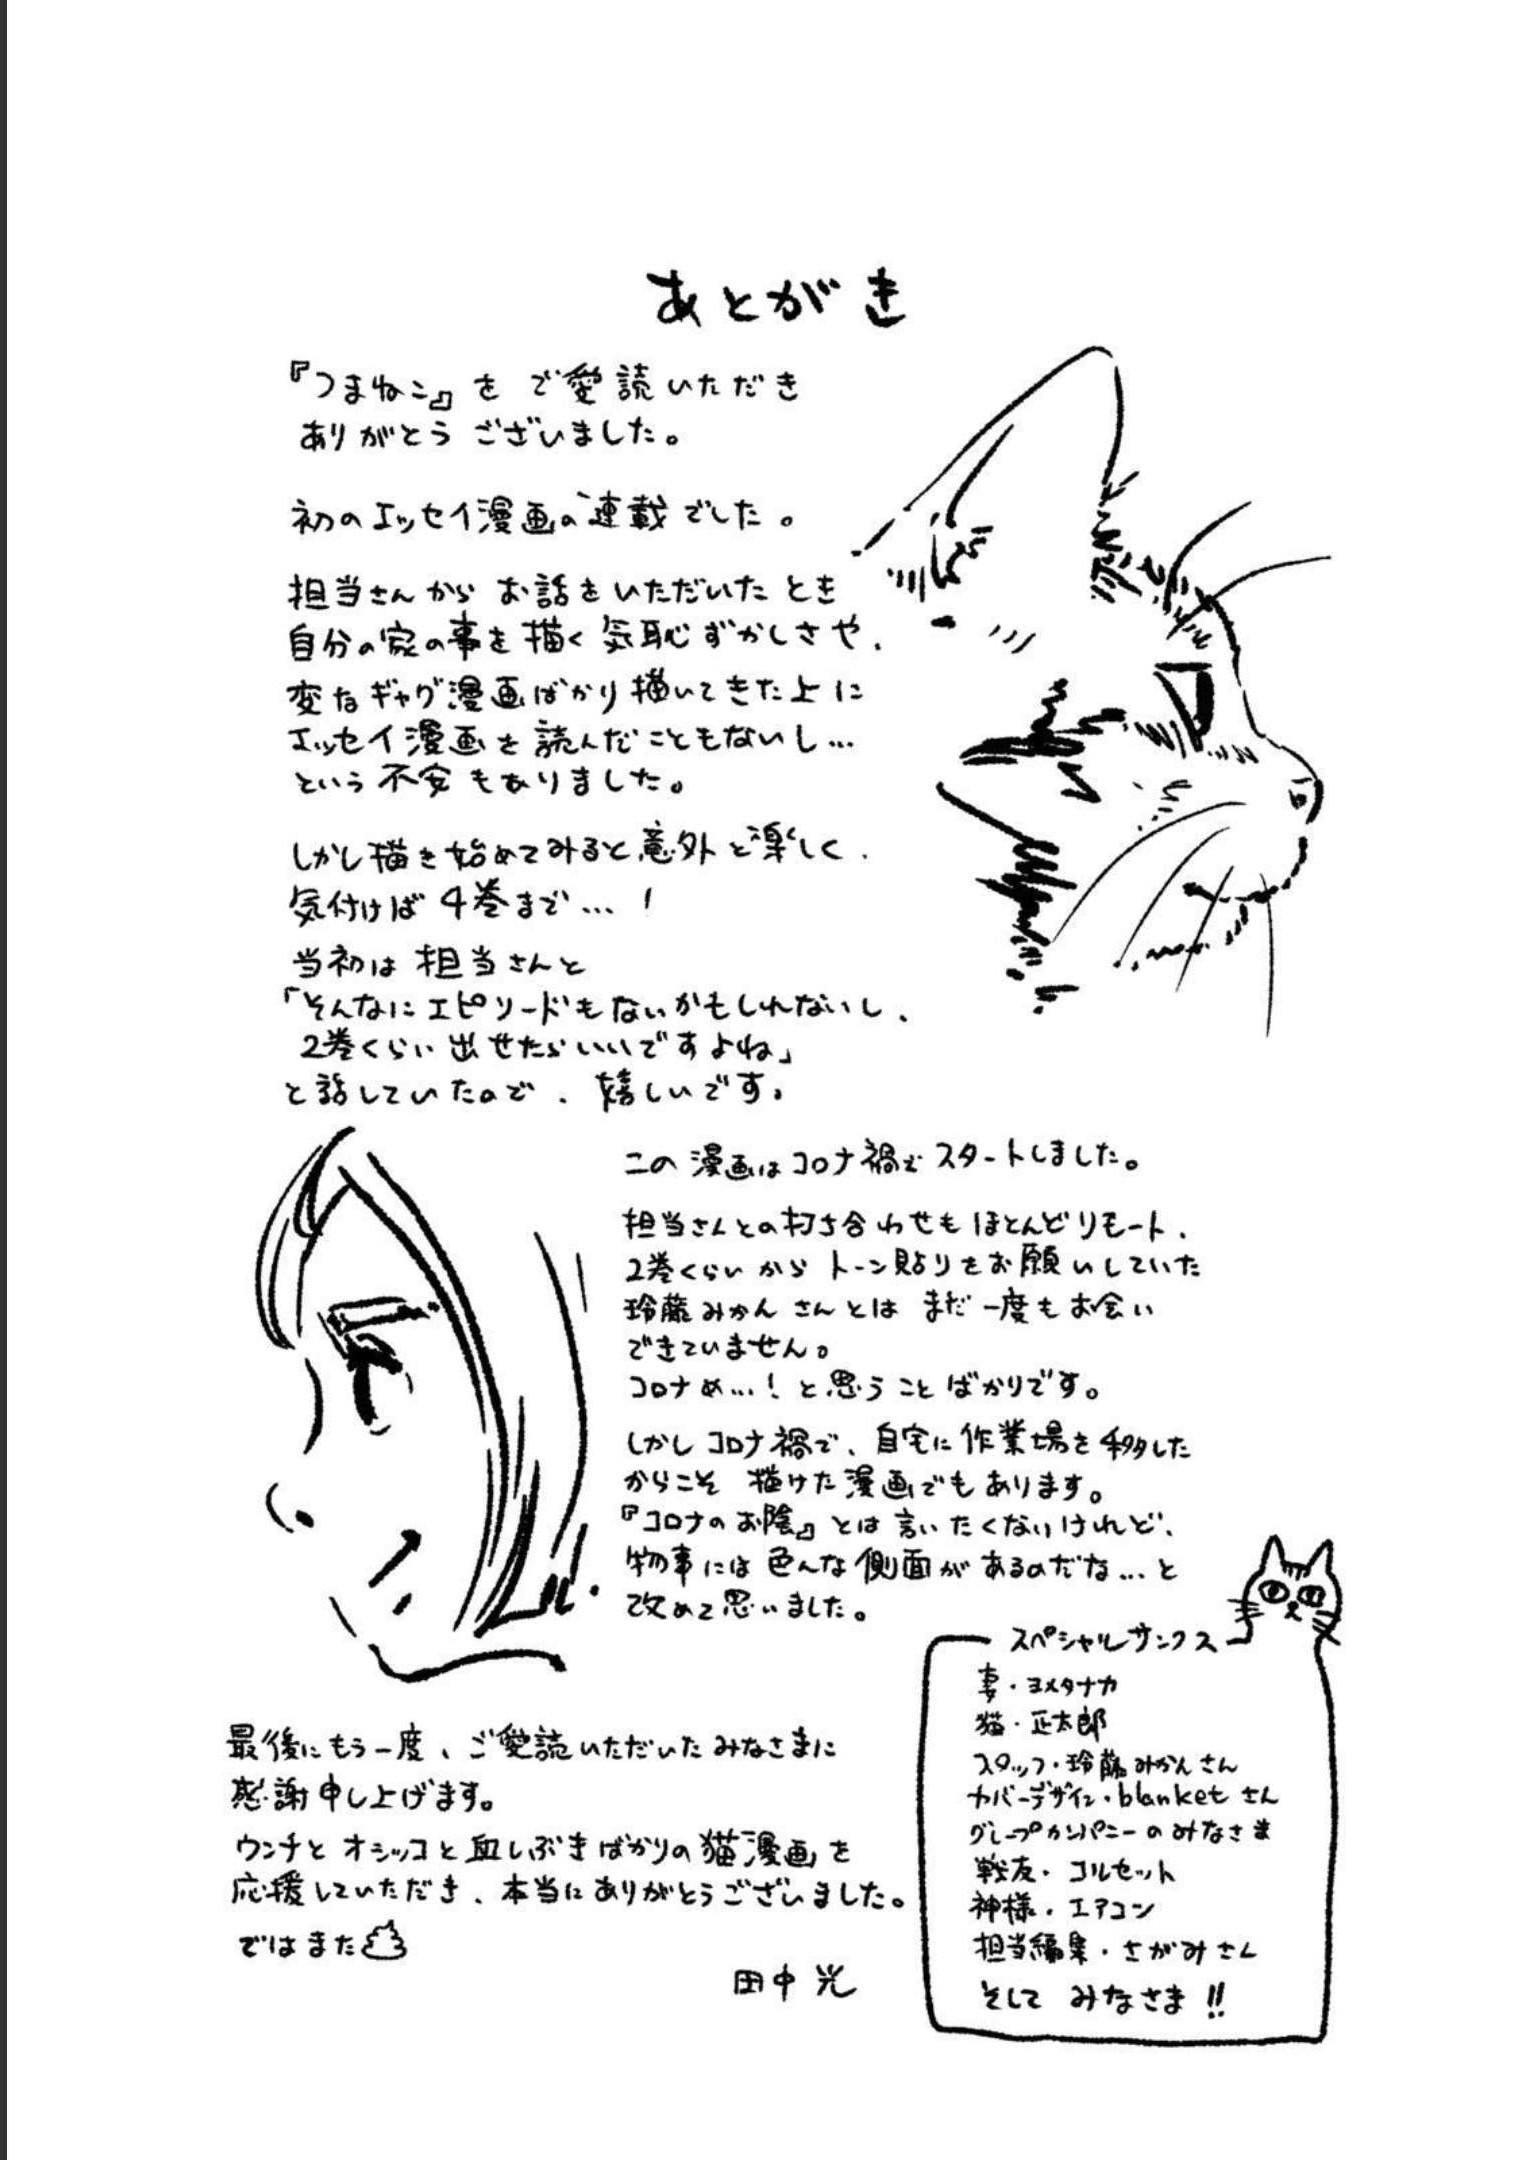 あとがき
『つまねこ』をご愛読いただき
ありがとうございました。
初のエッセイ漫画の連載でした。
担当さんからお話をいただいたとき
自分の家の事を描く気恥ずかしさや、
変なギャグ漫画ばかり描いてきた上に
エッセイ漫画を読んだこともないし…
という不安もありました。
しかし描き始めてみると意外と楽しく、
気付けば4巻まで…!
当初は担当さんと
「そんなにエピソードもないかもしれないし、
2巻くらい出せたらいいですよね」
と話していたので、嬉しいです。
この漫画はコロナ禍でスタートしました。
担当さんとの打ち合わせもほとんどリモート、
2巻くらいからトーン貼りをお願いしていた
玲藤みかんさんとはまだ一度もお会い
できていません。
コロナめ…!と思うことばかりです。
しかしコロナ禍で、自宅に作業場を移した
からこそ描けた漫画でもあります。
『コロナのお陰』とは言いたくないけれど、
物事には色んな側面があるのだな…と
改めて思いました。
最後にもう一度、ご愛読いただいたみなさまに
感謝申し上げます。
ウンチとオシッコと血しぶきばかりの猫漫画を
応援していただき、本当にありがとうございました。
ではまた
田中光
スペシャルサンクス
妻・ヨメタナカ
猫・正太郎
スタッフ・玲藤みかんさん
カバーデザイン・blanketさん
グレープカンパニーのみなさま
戦友・コルセット
神様・エアコン
担当編集・さがみさん
そしてみなさま!!